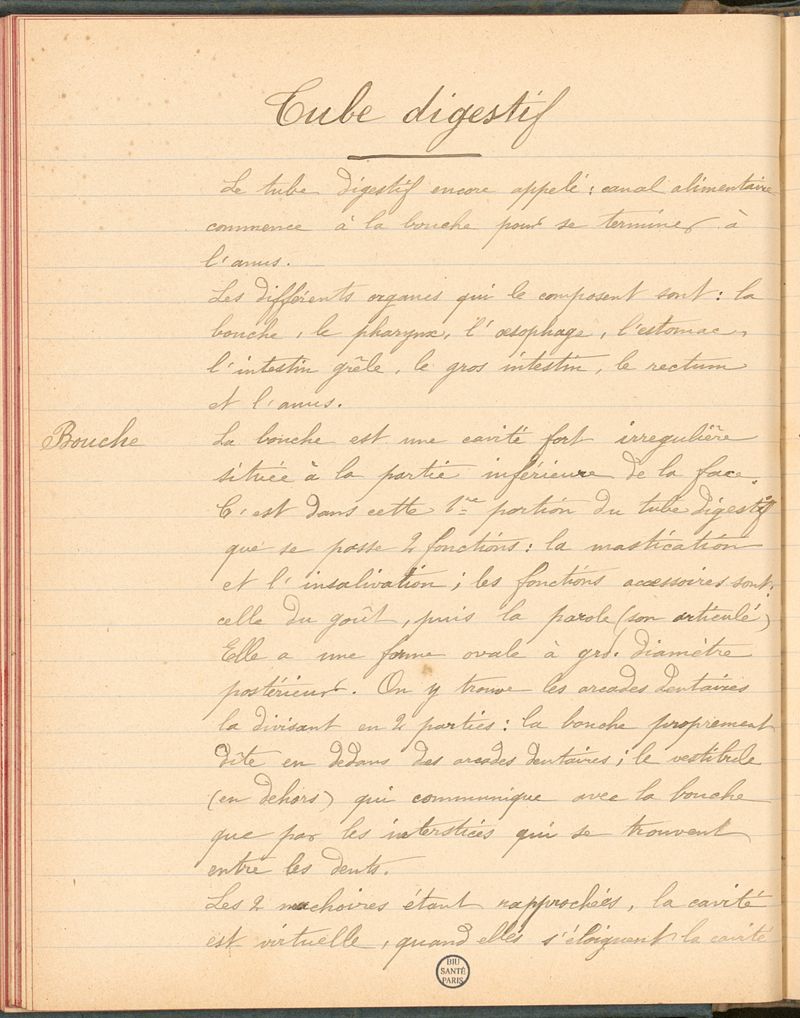 Tube digestif
Le tube digestif encore appelé : canal alimentaire
commence à la bouche pour se terminer à
l'anus.
Les différents organes qui le composent sont : la
bouche, le pharynx, l'œsophage, l'estomac,
l'intestin grêle, le gros intestin, le rectum
et l'anus.
Bouche
La bouche est une cavité fort irregulière
située à la partie inférieure de la face.
C'est dans cette 1re portion du tube digestif
que se passe 2 fonctions : la mastication
et l'insalivation ; les fonctions accessoires sont :
celle du goût, puis la parole (son articulé)
Elle a une forme ovale à grd. diamètre
postérieur. On y trouve les arcades dentaires
la divisant en 2 parties : la bouche proprement
dîte en dedans des arcades dentaires ; le vestibule
(en dehors) qui communique avec la bouche
que par les interstices qui se trouvent
entre les dents.
Les 2 machoires étant rapprochées, la cavité
est virtuelle, quand elles s'éloignent la cavité
BIU
SANTÉ
PARIS